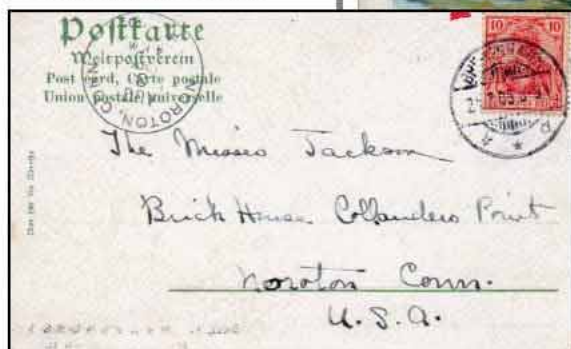 Postkarte
Weltpostverein
Post card, Carte postale
Union postale universelle
NOROTON, CONN.
10 10
The Misses Jackson
Brick House Collenders Point
Noroton Conn.
U.S.A.